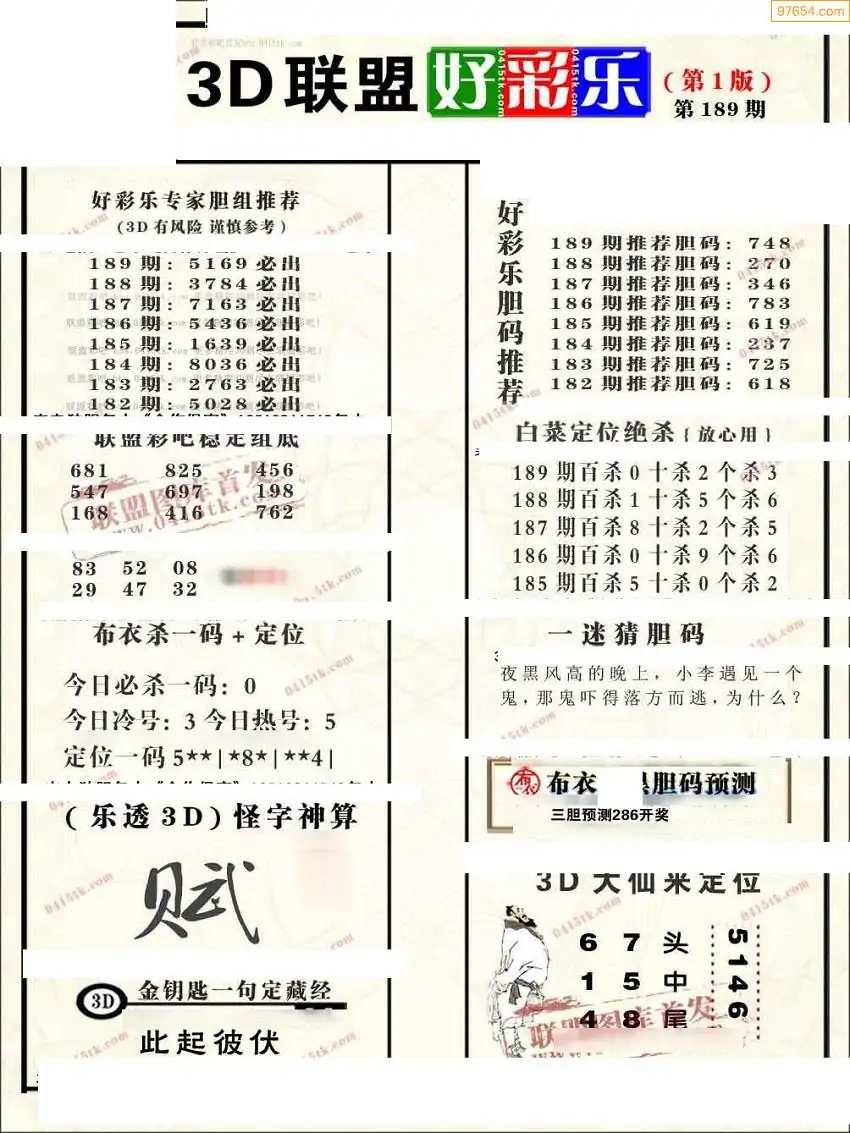 97654.com
3D联盟好彩乐
(第1版)
第189期
好彩乐专家胆组推荐
(3D有风险 谨慎参考)
189期：5169必出
188期：3784必出
187期：7163必出
186期：5436必出
185期：1639必出
184期：8036必出
183期：2763必出
182期：5028必出
联盟彩吧稳定组底
681 825 456
547 697 198
168 416 762
83 52 08
29 47 32
布衣杀一码+定位
今日必杀一码：0
今日冷号：3 今日热号：5
定位一码5**|*8*|**4|
(乐透3D)怪字神算
3D 金钥匙一句定藏经
此起彼伏
好彩乐胆码推荐
189期推荐胆码：748
188期推荐胆码：270
187期推荐胆码：346
186期推荐胆码：783
185期推荐胆码：619
184期推荐胆码：237
183期推荐胆码：725
182期推荐胆码：618
白菜定位绝杀{放心用}
189期百杀0十杀2个杀3
188期百杀1十杀5个杀6
187期百杀8十杀2个杀5
186期百杀0十杀9个杀6
185期百杀5十杀0个杀2
一迷猜胆码
夜黑风高的晚上，小李遇见一个
鬼，那鬼吓得落方而逃，为什么？
布衣 胆码预测
三胆预测286开奖
3D大仙来定位
6 7 头
1 5 中
4 8 尾
5146
联盟图库首发
www.0415tk.com
0415tk.com